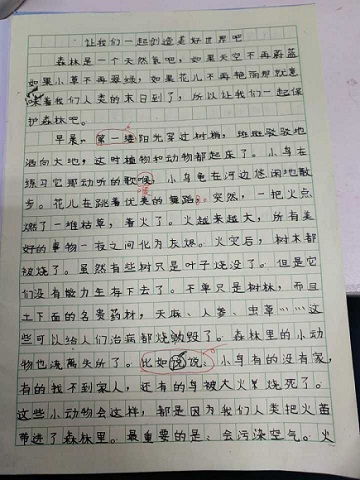 让我们一起创造美好世界吧
森林是一个天然氧吧，如果天空不再蔚蓝
如果小草不再翠绿，如果花儿不再艳丽那就意
味着我们人类的末日到了，所以让我们一起保
护森林吧。
早晨，第一缕阳光穿过树梢，斑斑驳驳地
洒向大地，这时植物和动物都起床了。小鸟在
练习它那动听的歌喉，小龟在河边悠闲地散
步。花儿在跳着优美的舞蹈。突然，一把火点
燃了一堆枯草，着火了。火越来越大，所有美
好的事物一夜之间化为灰烬。火灾后，树木都
被烧了。虽然有些树只是叶子烧没了。但是它
们没有能力生存下去了。不单只是树林，而且
土下面的名贵药材，天麻、人参、虫草……这
些可以给人们治病都烧毁了。森林里的小动
物也流离失所了。比如说说：小鸟有的没有家，
有的找不到家人，还有的鸟被大火烧死了。
这些小动物会这样，都是因为我们人类把火苗
带进了森林里。最重要的是，会污染空气。火